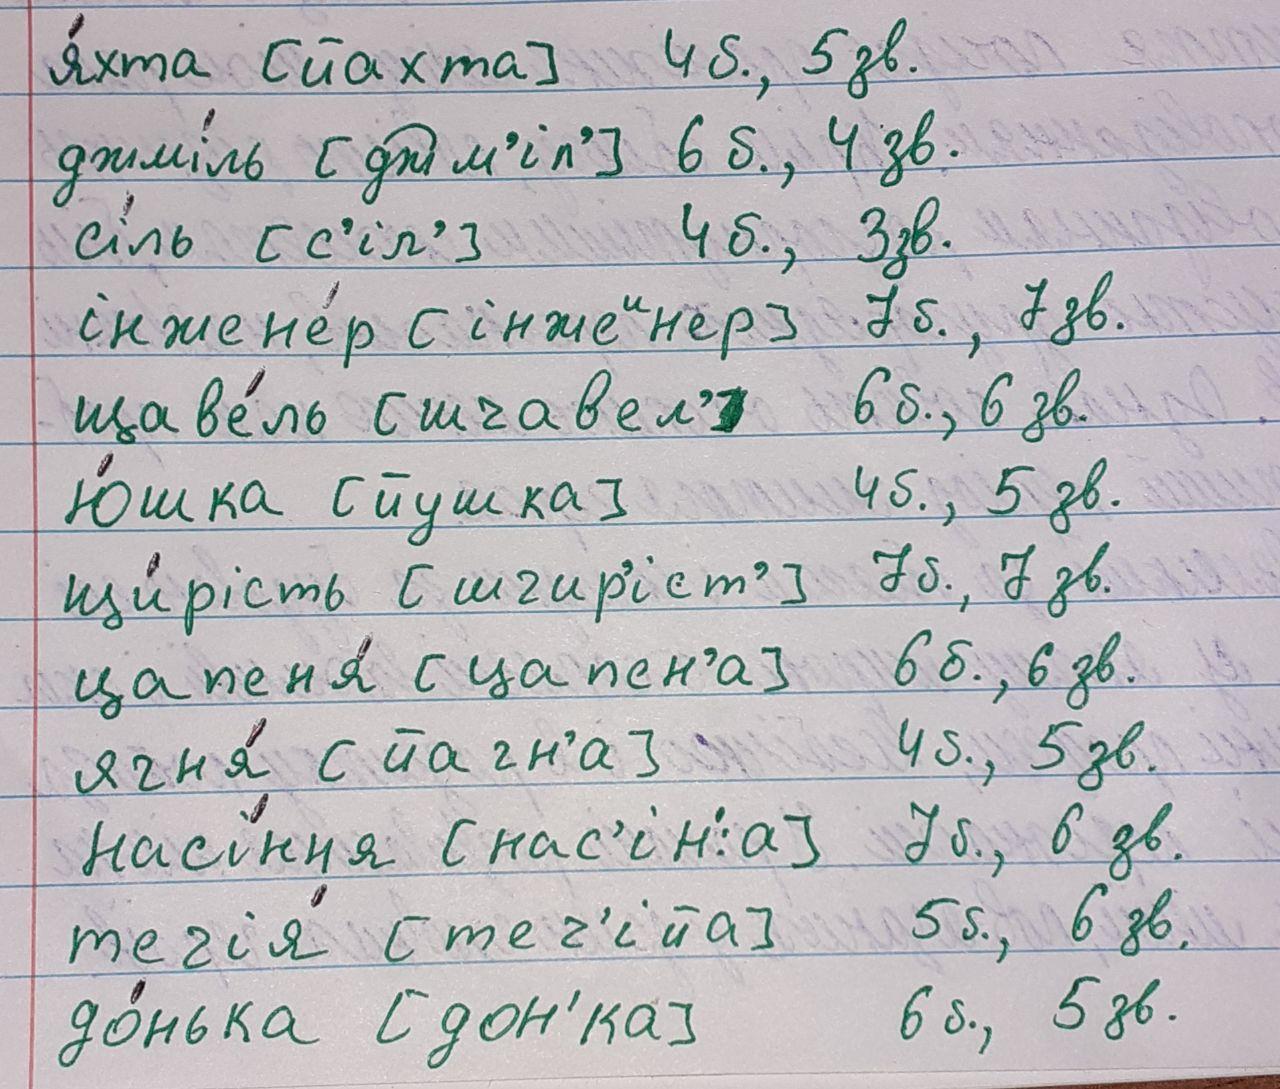 я́хта [йахта] 4 б., 5 зв.
джмі́ль [д͡жм’іл’] 6 б., 4 зв.
сі́ль [с’іл’] 4 б., 3 зв.
інжене́р [інжеᶦнер] 7 б., 7 зв.
щаве́ль [шчавел’] 6 б., 6 зв.
ю́шка [йушка] 4 б., 5 зв.
щи́рість [шчир’іст’] 7 б., 7 зв.
цапеня́ [цапен’а] 6 б., 6 зв.
ягня́ [йагн’а] 4 б., 5 зв.
насі́ння [нас’ін’:а] 7 б., 6 зв.
течія́ [теч’ійа] 5 б., 6 зв.
до́нька [дон’ка] 6 б., 5 зв.